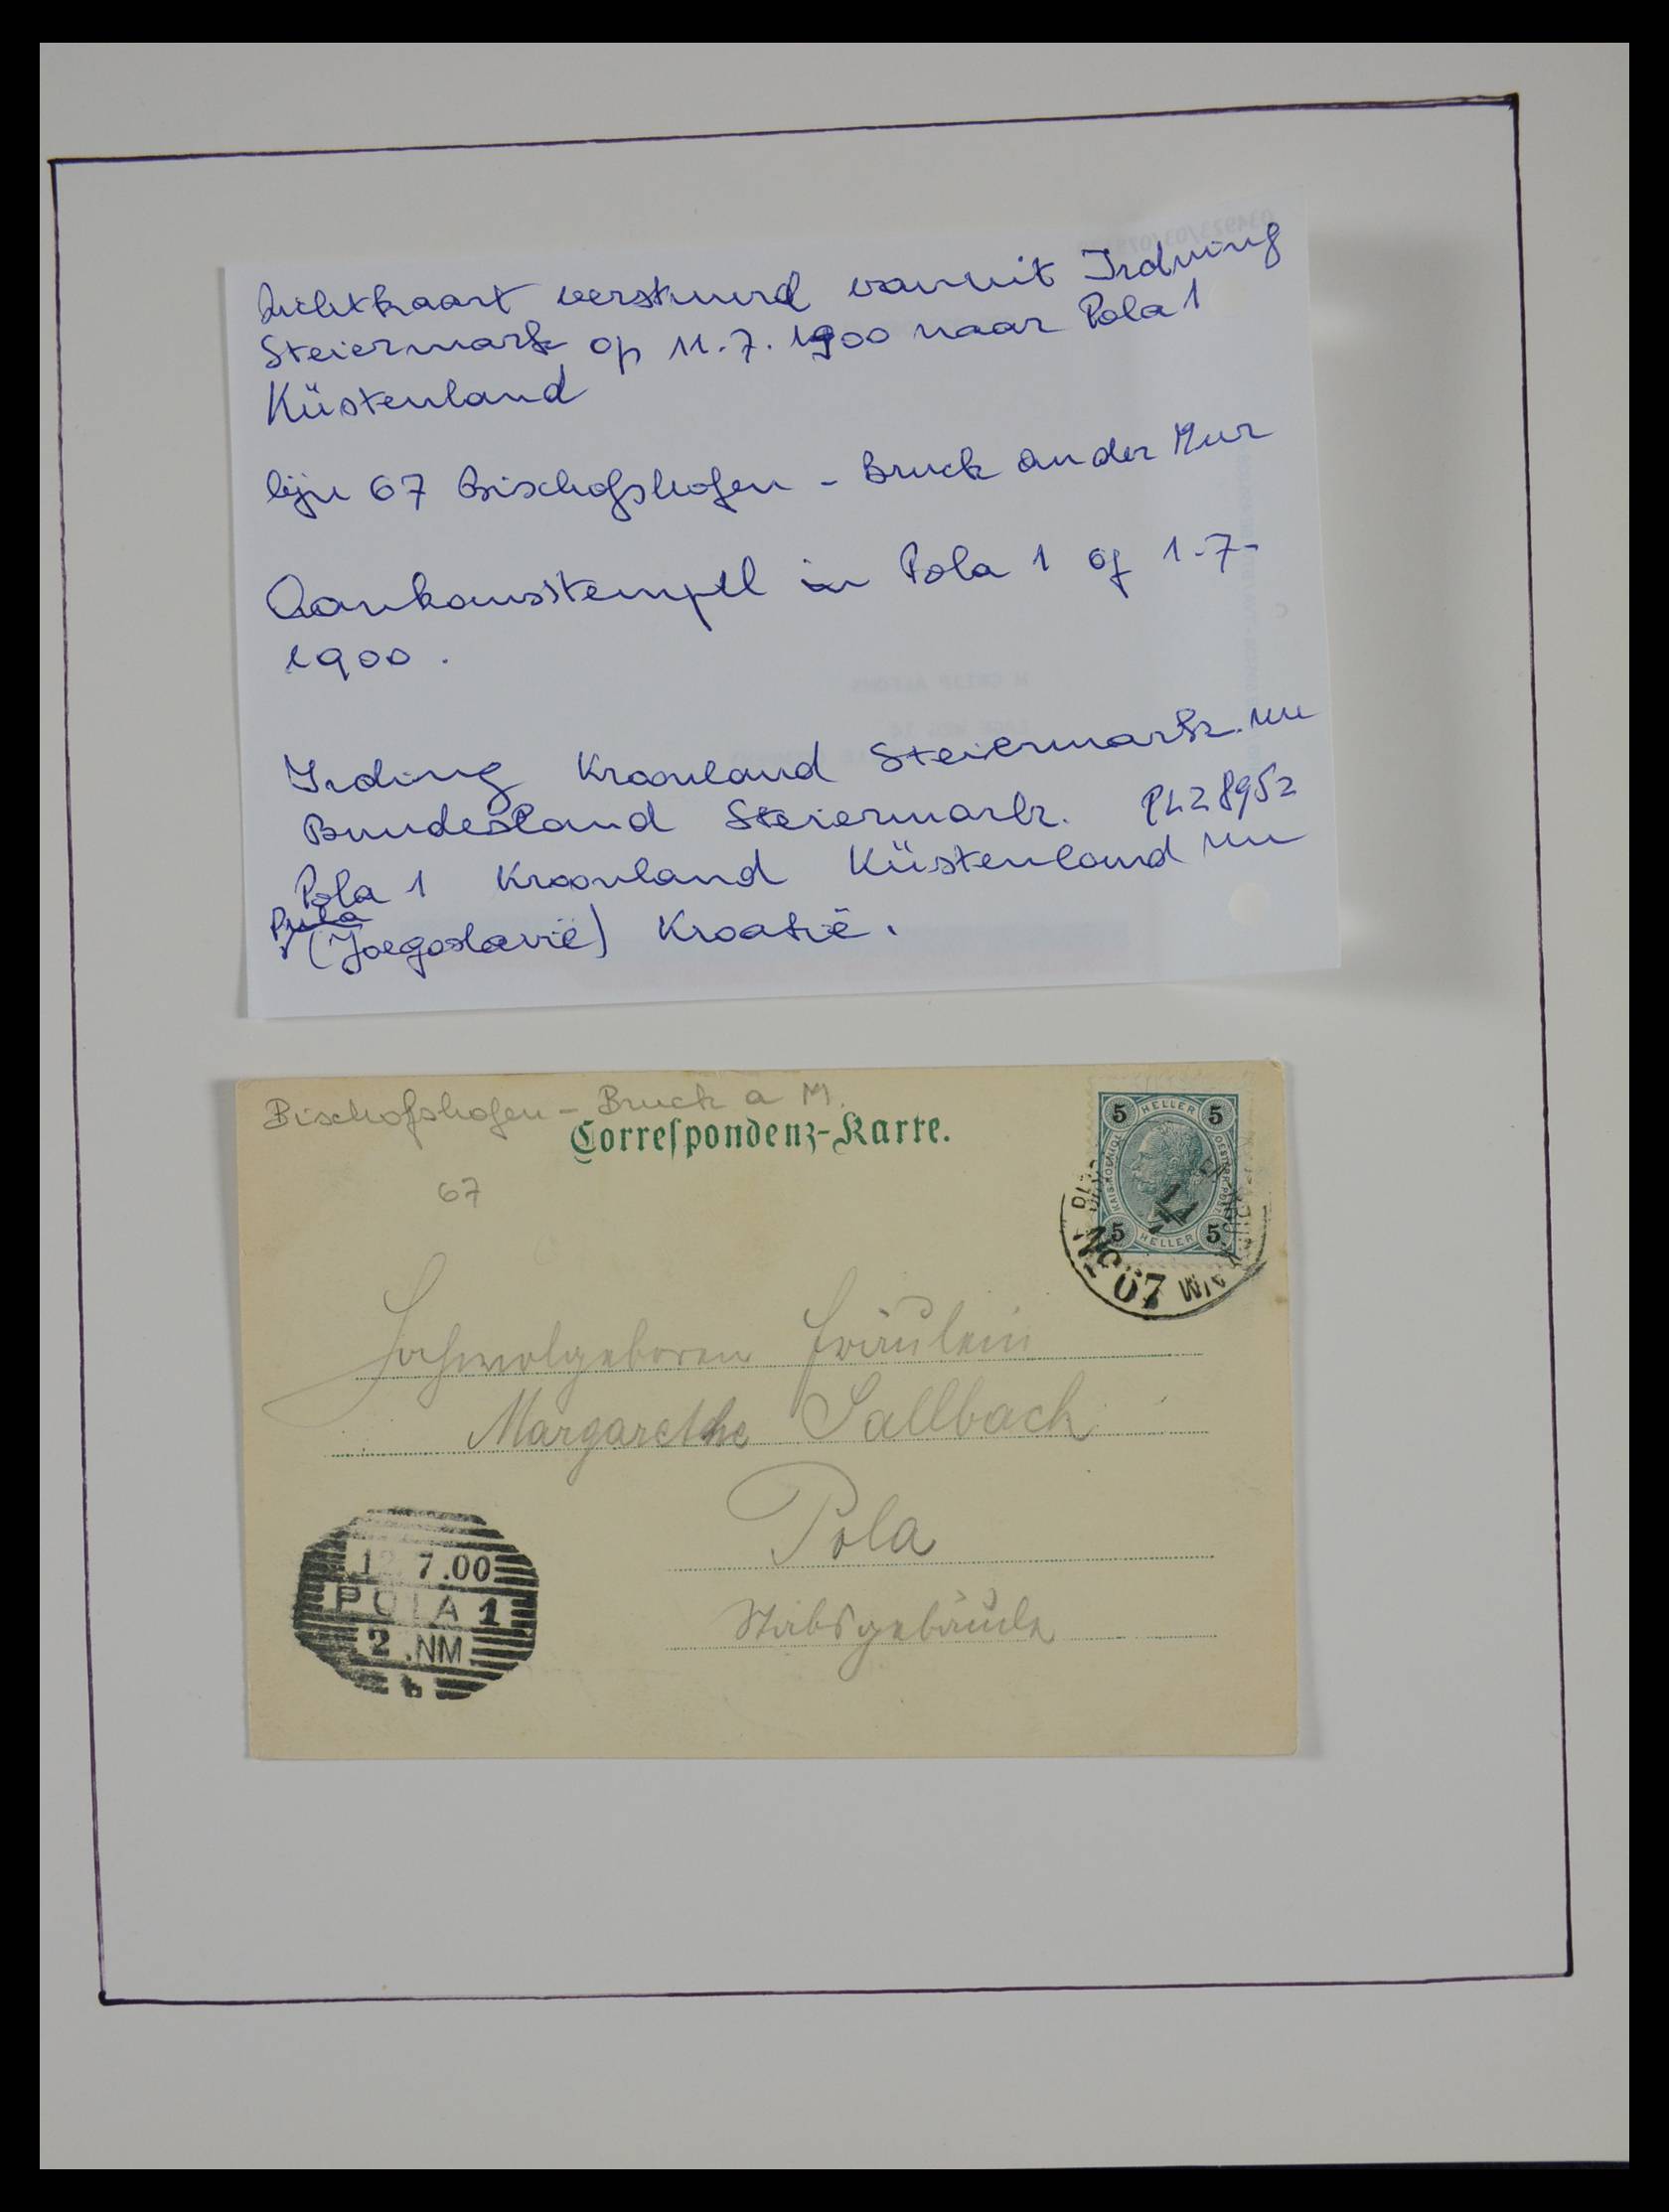 Zichtkaart verstuurd vanuit Irdning
Steiermark op 11.7.1900 naar Pola 1
Küstenland
lijn 67 Bischofshofen - Bruck an der Mur
Aankomststempel in Pola 1 of 1-7-
1900.
Irding Kroonland Steiermark. nu
Bundesland Steiermark. PLZ 8952
Pola 1 Kroonland Küstenland nu
Pula
(Joegoslavië) Kroatië.
Bischofshofen - Bruck a M.
Correspondenz-Karte.
67
5 HELLER 5
KAIS. KOENIGL. OESTERR. POST
5 HELLER 5
11
Nº 67
Hochwolgeboren Fräulein
Margarethe Sallbach
Pola
Stabsgebäude
12 7.00
POLA 1
2.NM
b